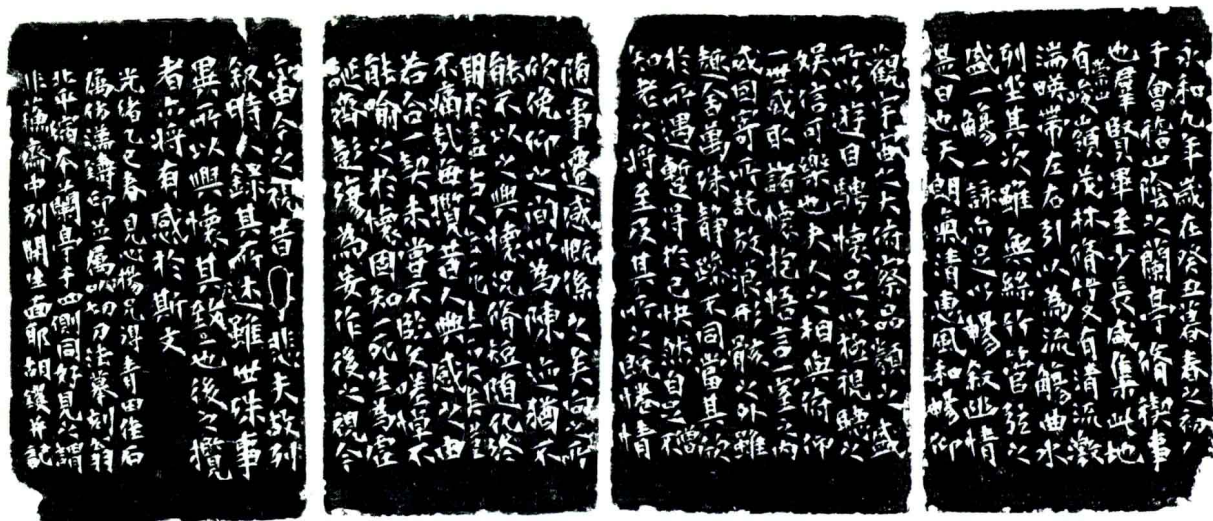 永和九年歲在癸丑暮春之初會
于會稽山陰之蘭亭脩稧事
也羣賢畢至少長咸集此地
有崇山峻領茂林脩竹又有清流激
湍暎帶左右引以為流觴曲水
列坐其次雖無絲竹管弦之
盛一觴一詠亦足以暢敘幽情
是日也天朗氣清惠風和暢仰
觀宇宙之大俯察品類之盛
所以遊目騁懷足以極視聽之
娛信可樂也夫人之相與俯仰
一世或取諸懷抱悟言一室之內
或因寄所託放浪形骸之外雖
趣舍萬殊靜躁不同當其欣
於所遇暫得於己快然自足不
知老之將至及其所之既惓情
隨事遷感慨係之矣向之所
欣俛仰之間以為陳迹猶不
能不以之興懷況脩短隨化終
期於盡古人云死生亦大矣豈
不痛哉每攬昔人興感之由
若合一契未嘗不臨文嗟悼不
能喻之於懷固知一死生為虛
誕齊彭殤為妄作後之視今
亦由今之視昔悲夫故列
敘時人錄其所述雖世殊事
異所以興懷其致一也後之攬
者亦將有感於斯文
光緒乙巳春見心楊兄得青田佳石
屬鑄印並屬以切刀法摹刻翁
北平縮本蘭亭于四側同好見之謂
非蘇齋中別開生面耶胡钁并記